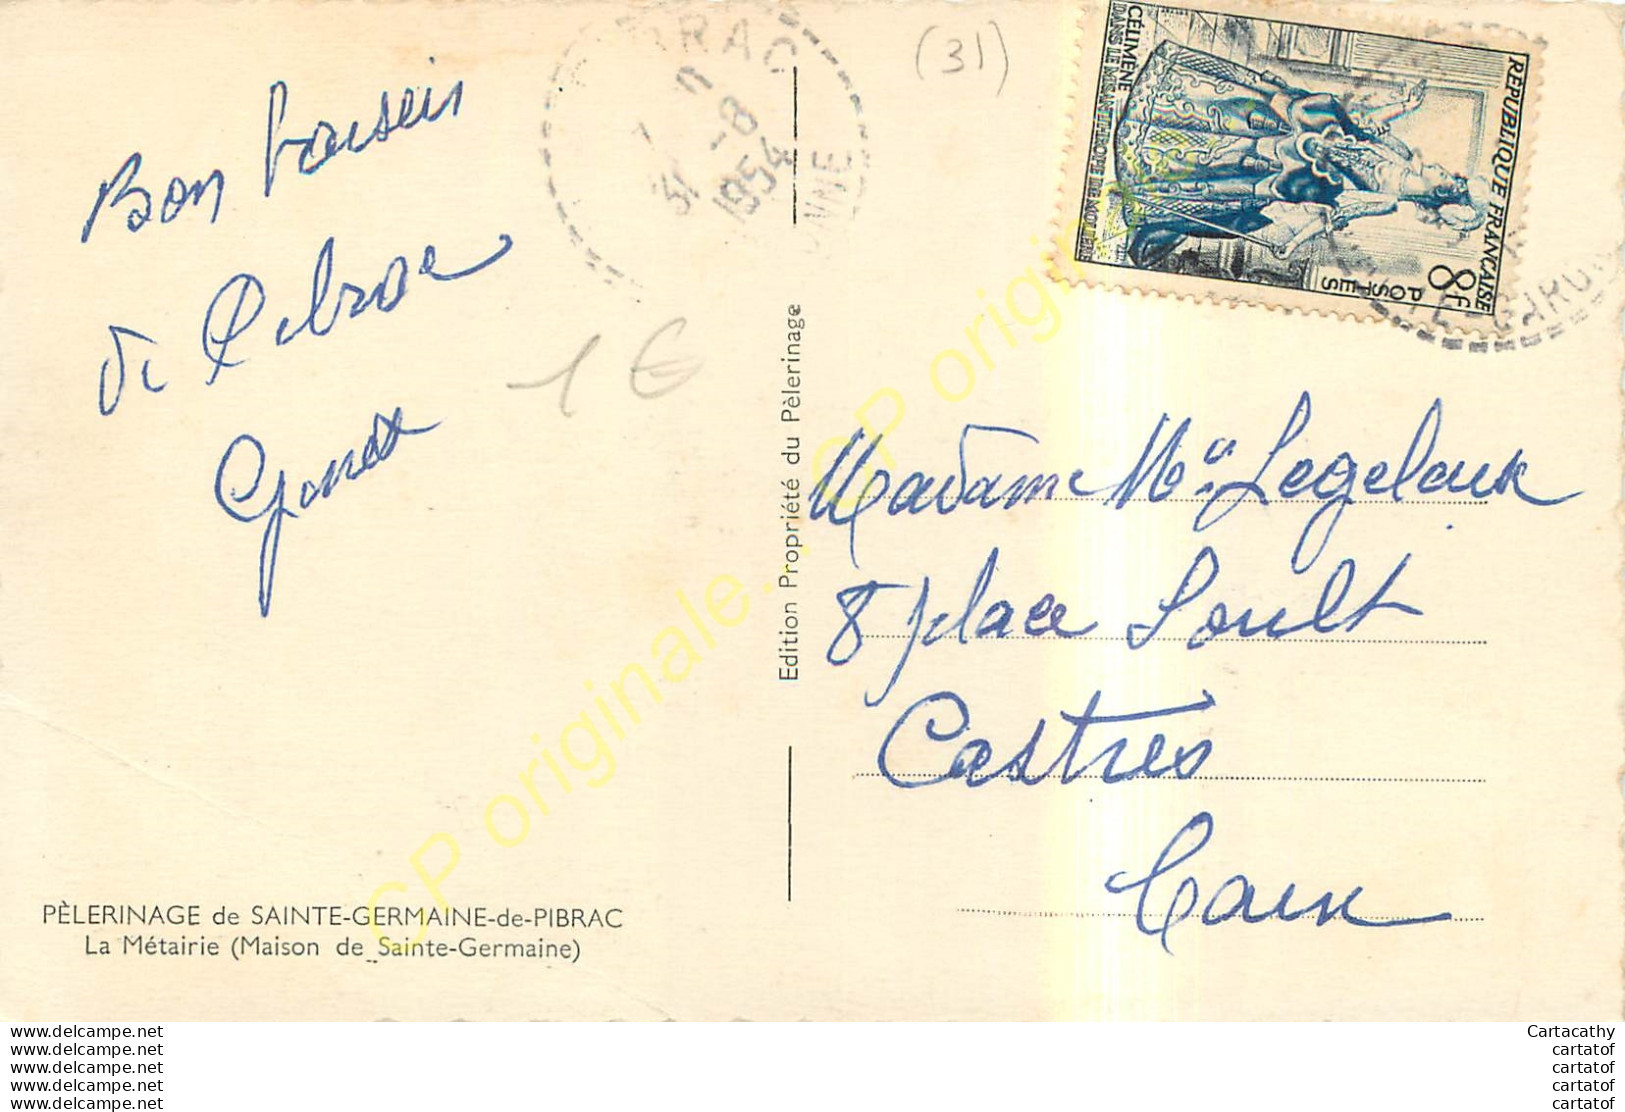 (31)
RÉPUBLIQUE FRANÇAISE
8F
POSTES
CÉLIMÈNE
DANS LE MISANTHROPE DE MOLIÈRE
1954
Bon baiser
de Pibrac
Edition Propriété du Pèlerinage
Madame Legeloux
8 place Soult
Castres
Tarn
1 €
PÈLERINAGE de SAINTE-GERMAINE-de-PIBRAC
La Métairie (Maison de Sainte-Germaine)
CP originale... CP originale
www.delcampe.net
www.delcampe.net
www.delcampe.net
www.delcampe.net
www.delcampe.net
Cartacathy
cartatof
cartatof
cartatof
cartatof